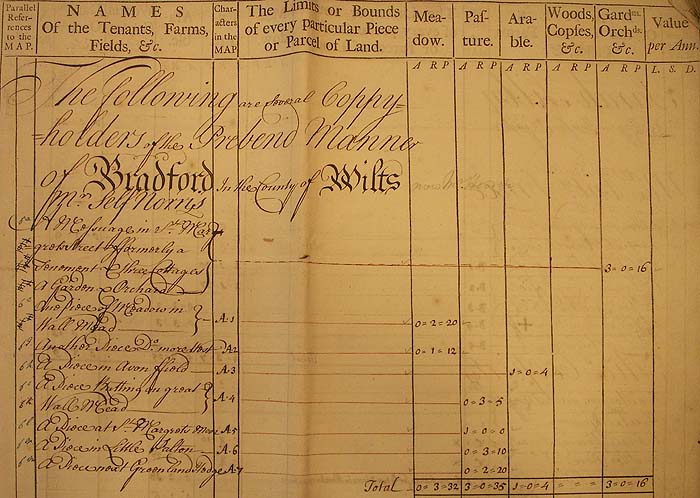 Parallel References to the MAP.
NAMES Of the Tenants, Farms, Fields, &c.
Characters in the MAP
The Limits or Bounds of every Particular Piece or Parcel of Land.
Meadow.
Pasture.
Arable.
Woods, Copses, &c.
Gardns. Orchds. &c.
Value per Ann.
A R P A R P A R P A R P A R P L. S. D.
The following are several Coppy=
=holders of the Prebend Manner
of Bradford In the County of Wilts
Mr. Self Norris
A Messuage in St. Mar
grets Street formerly a
Tenement & Three Cottages 3=0=16
a Garden & Orchard
One Piece of Meadow in
Wall Mead A.1 0=2=20
Another Piece Do. more West A.2 0=1=12
A Piece in Avon ffield A.3 1=0=4
A Piece Butting on great
Wall Mead A.4 0=3=5
A Piece at St. Margrets A.5 1=0=0
A Piece in Little A.6 0=3=10
A Piece next Greenland A.7 0=2=20
Total 0=3=32 3=0=35 1=0=4 = = = 3=0=16